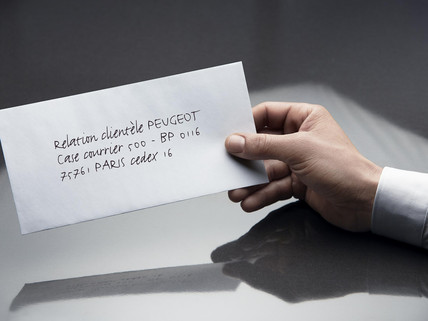 Relation clientèle PEUGEOT
Case courrier 500 - BP 0116
75761 PARIS cedex 16